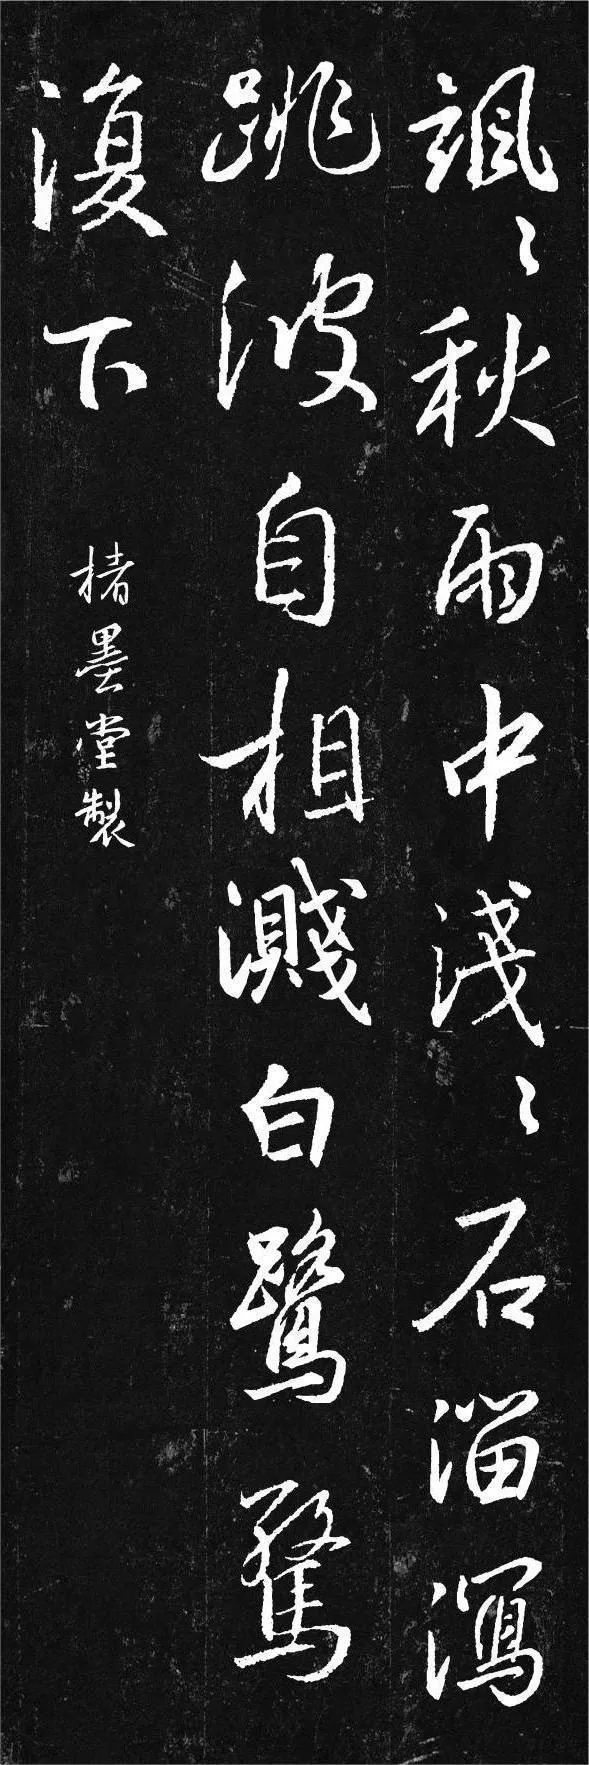 颯〻秋雨中淺〻石溜瀉
跳波自相濺白鷺驚
復下
楮墨堂製